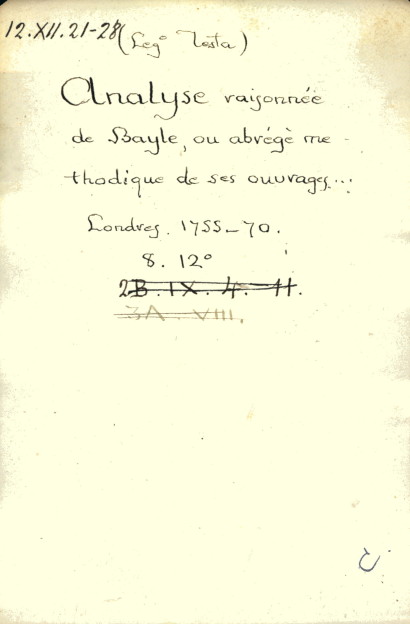 12.XII.21-28 (Leg° Testa)
Analyse raisonnée
de Bayle, ou abrégé me-
thodique de ses ouvrages...
Londres. 1755-70.
8. 12°
2B. IX. 4. 11.
3A. VIII.